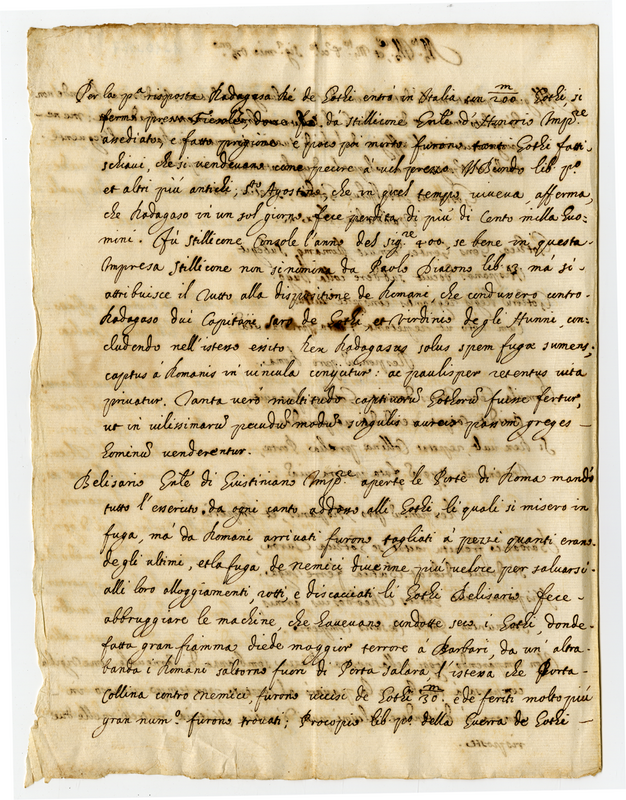 Per la p.ª risposta Radagaso Re de Gothi entrò in Italia con m/200 Gothi, si
fermò presso Fiesole, dove fù da stillicone Gñale d'Honorio Imp.re
assediato, e fatto prigione e poco poi morto furono tanti Gothi fatti
schiavi, che si vendevano come pecore à vil prezzo. Il Biondo lib. p.º
et altri più antichi; S.to Agostino, che in quel tempo viveva, afferma,
che Radagaso in un sol giorno fece perdita di più di Cento milla Huo:
mini. Fù stillicone Console l'anno del sig.re 400. se bene in questa
Impresa stillicone non si nomina da Paolo Diacono lib. 13. mà si
attribuisce il tutto alla dispositione de Romani, che condussero contro
Radagaso dui Capitani saro de Gothi et Virdinio degli Hunni, con:
cludendo nell'istesso esito, Rex Radagasus solus spem fuga sumens,
captus à Romanis in vincula conijcitur: ac paulisper retentus vita
privatur. Tanta verò multitudo captivorū Gothorū fuisse fertur,
ut in vilissimarū pecudū modū singulis aureis passim greges
hominū venderentur.
Belisario Gñale di Giustiniano Imp.re aperte le Porte di Roma mandò
tutto l'essercito da ogni canto addosso alli Gothi, li quali si misero in
fuga, mà da Romani arrivati furono tagliati à pezzi quanti erano
degli ultimi, et la fuga de nemici divenne più veloce per salvarsi
alli loro alloggiamenti, rotti, e discacciati li Gothi Belisario fece
abbruggiare le machine, che havevano condotte seco i Gothi, donde
fatta gran fiamma diede maggior terrore à Barbari, da un altra
banda i Romani saltorno fuori di Porta salara l'istessa che Porta
Collina contro nemici furono uccisi de Gothi m/30. e de feriti molto più
gran num.º furono trovati; Procopio lib. p.º della Guerra de Gothi